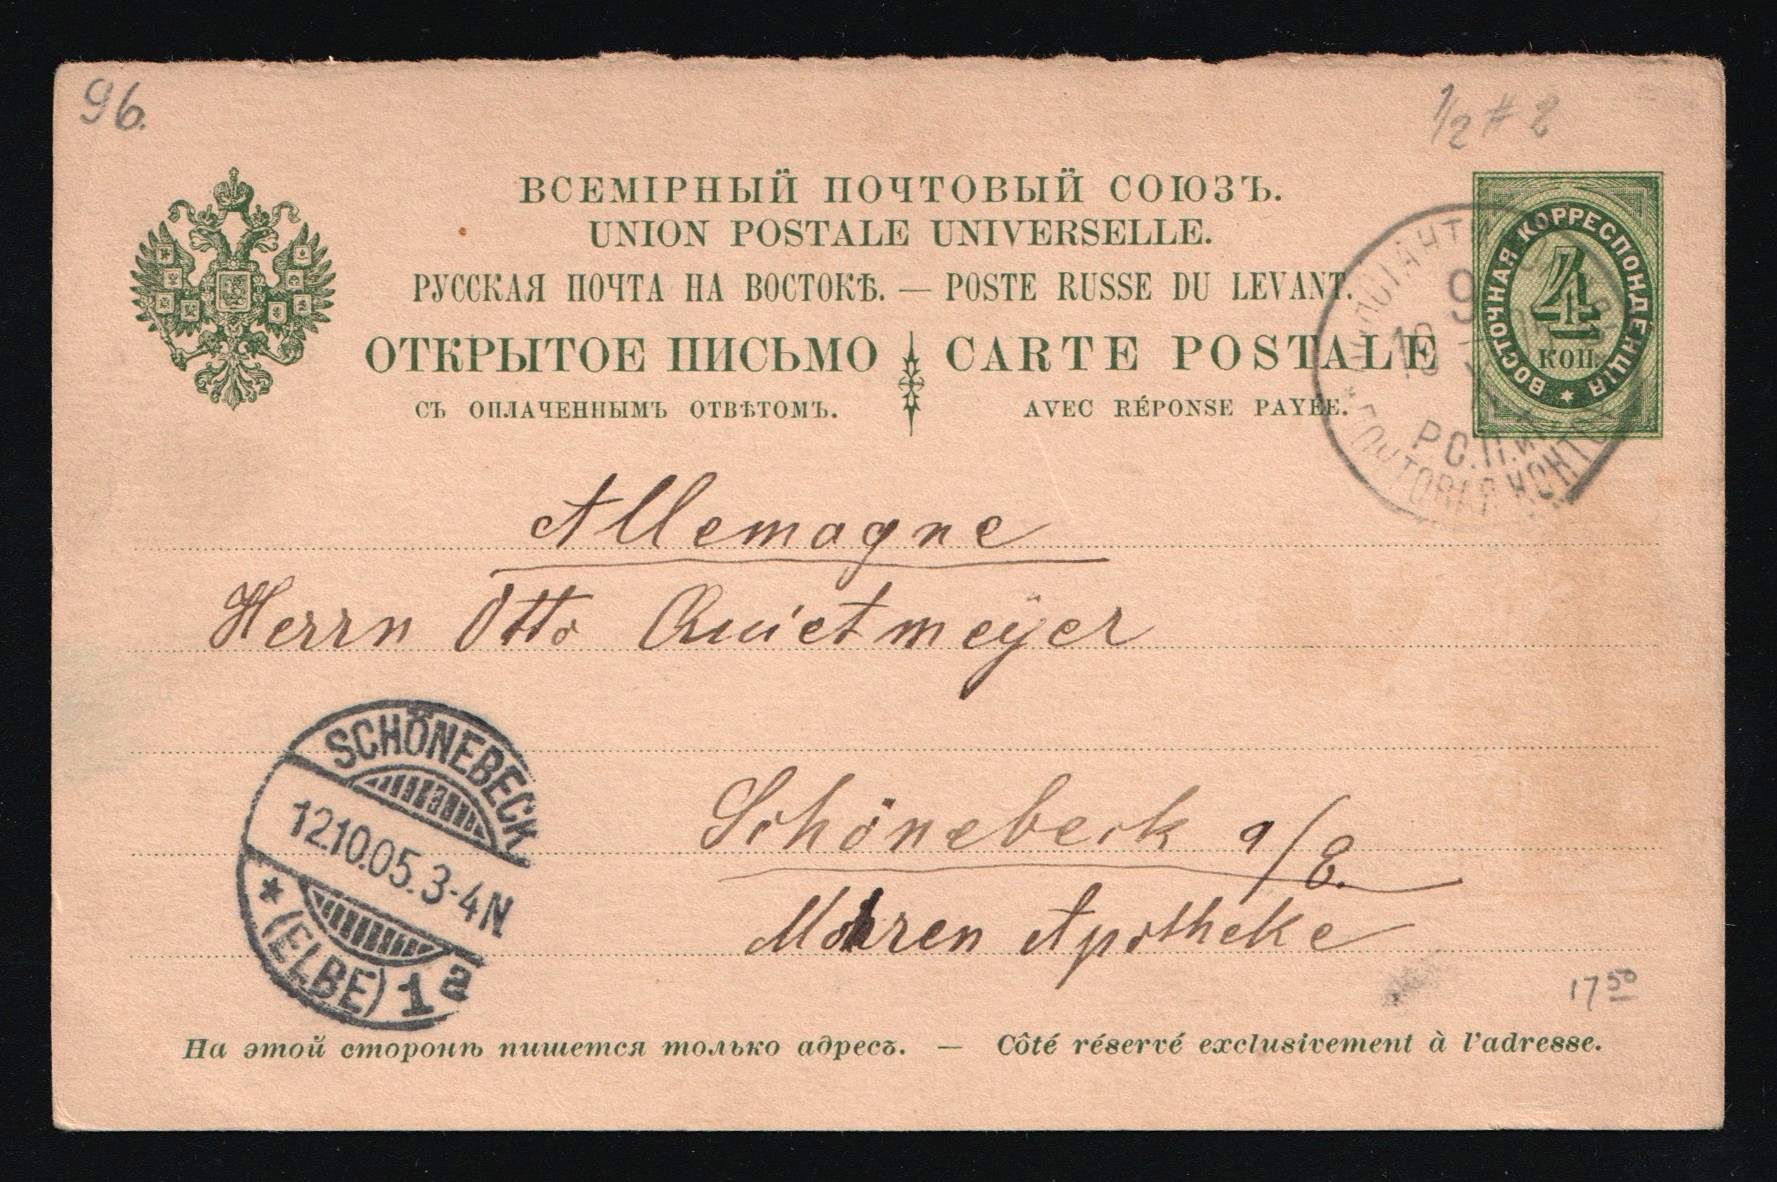 96.
1/2 # 2
ВСЕМІРНЫЙ ПОЧТОВЫЙ СОЮЗЪ.
UNION POSTALE UNIVERSELLE.
РУССКАЯ ПОЧТА НА ВОСТОКѢ. — POSTE RUSSE DU LEVANT.
ОТКРЫТОЕ ПИСЬМО CARTE POSTALE
СЪ ОПЛАЧЕННЫМЪ ОТВѢТОМЪ. AVEC RÉPONSE PAYÉE.
ВОСТОЧНАЯ КОРРЕСПОНДЕНЦІЯ
4
КОП.
9
Р.О.П.и Т.
ПОЧТОВАЯ КОНТОРА
Allemagne
Herrn Otto Quietmeÿer
Schönebeck a/E.
Mohren Apotheke
SCHÖNEBECK
12.10.05.3-4N
* (ELBE) 1a
17 50
На этой сторонѣ пишется только адресъ. — Côté réservé exclusivement à l'adresse.